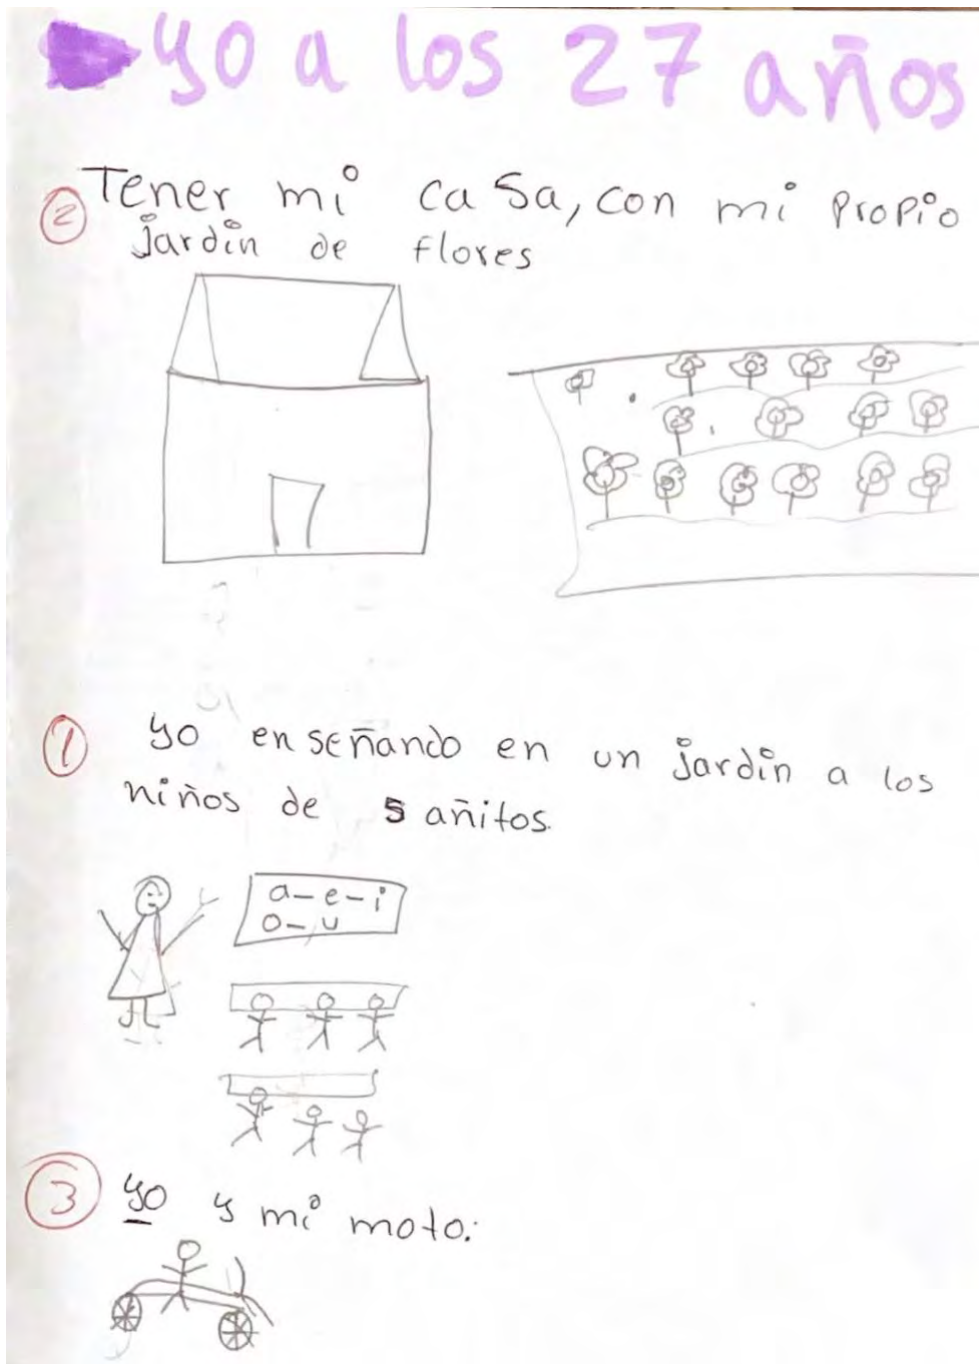 yo a los 27 años
② Tener mi casa, con mi propio
jardin de flores
① yo enseñando en un jardin a los
niños de 5 añitos.
a-e-i
o-u
③ yo y mi moto.